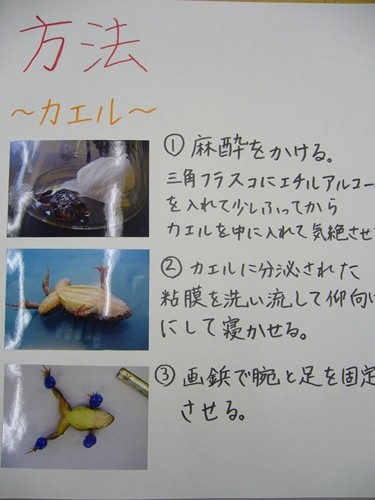 方法
～カエル～
① 麻酔をかける。
三角フラスコにエチルアルコー
を入れて少しふってから
カエルを中に入れて気絶させ
② カエルに分泌された
粘膜を洗い流して仰向け
にして寝かせる。
③ 画鋲で腕と足を固定
させる。